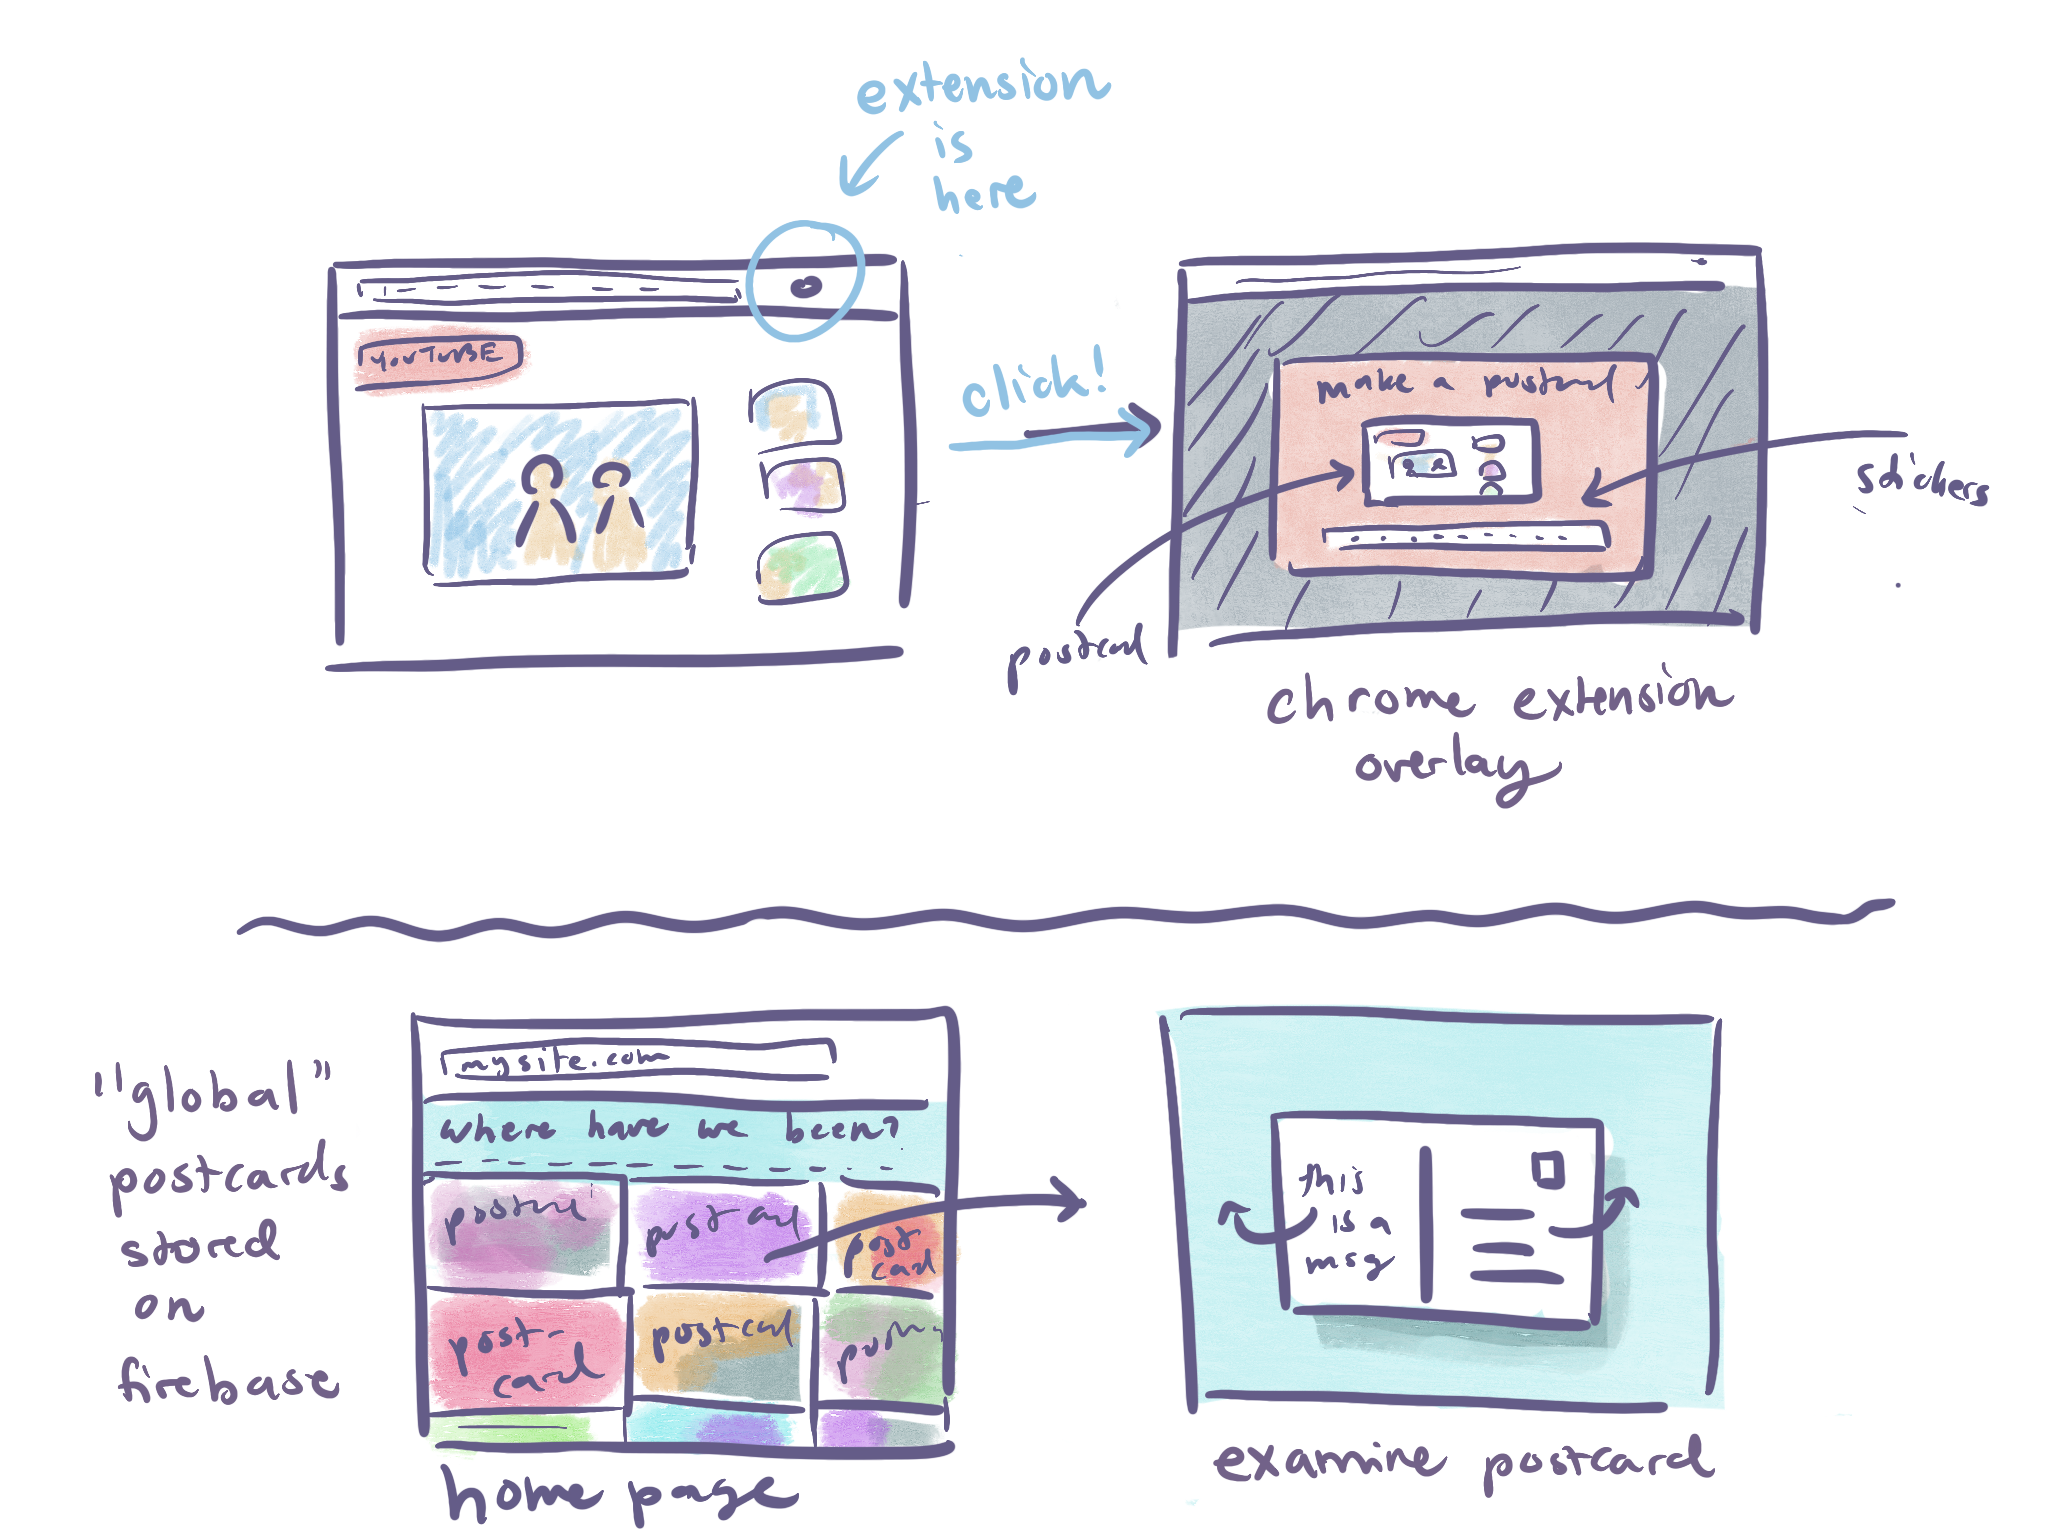 extension
is
here
YOUTUBE
click!
make a postcard
stickers
postcard
chrome extension
overlay
"global"
postcards
stored
on
firebase
mysite.com
where have we been?
postcard
postcard
post
card
post-
card
postcard
home page
this
is a
msg
examine postcard